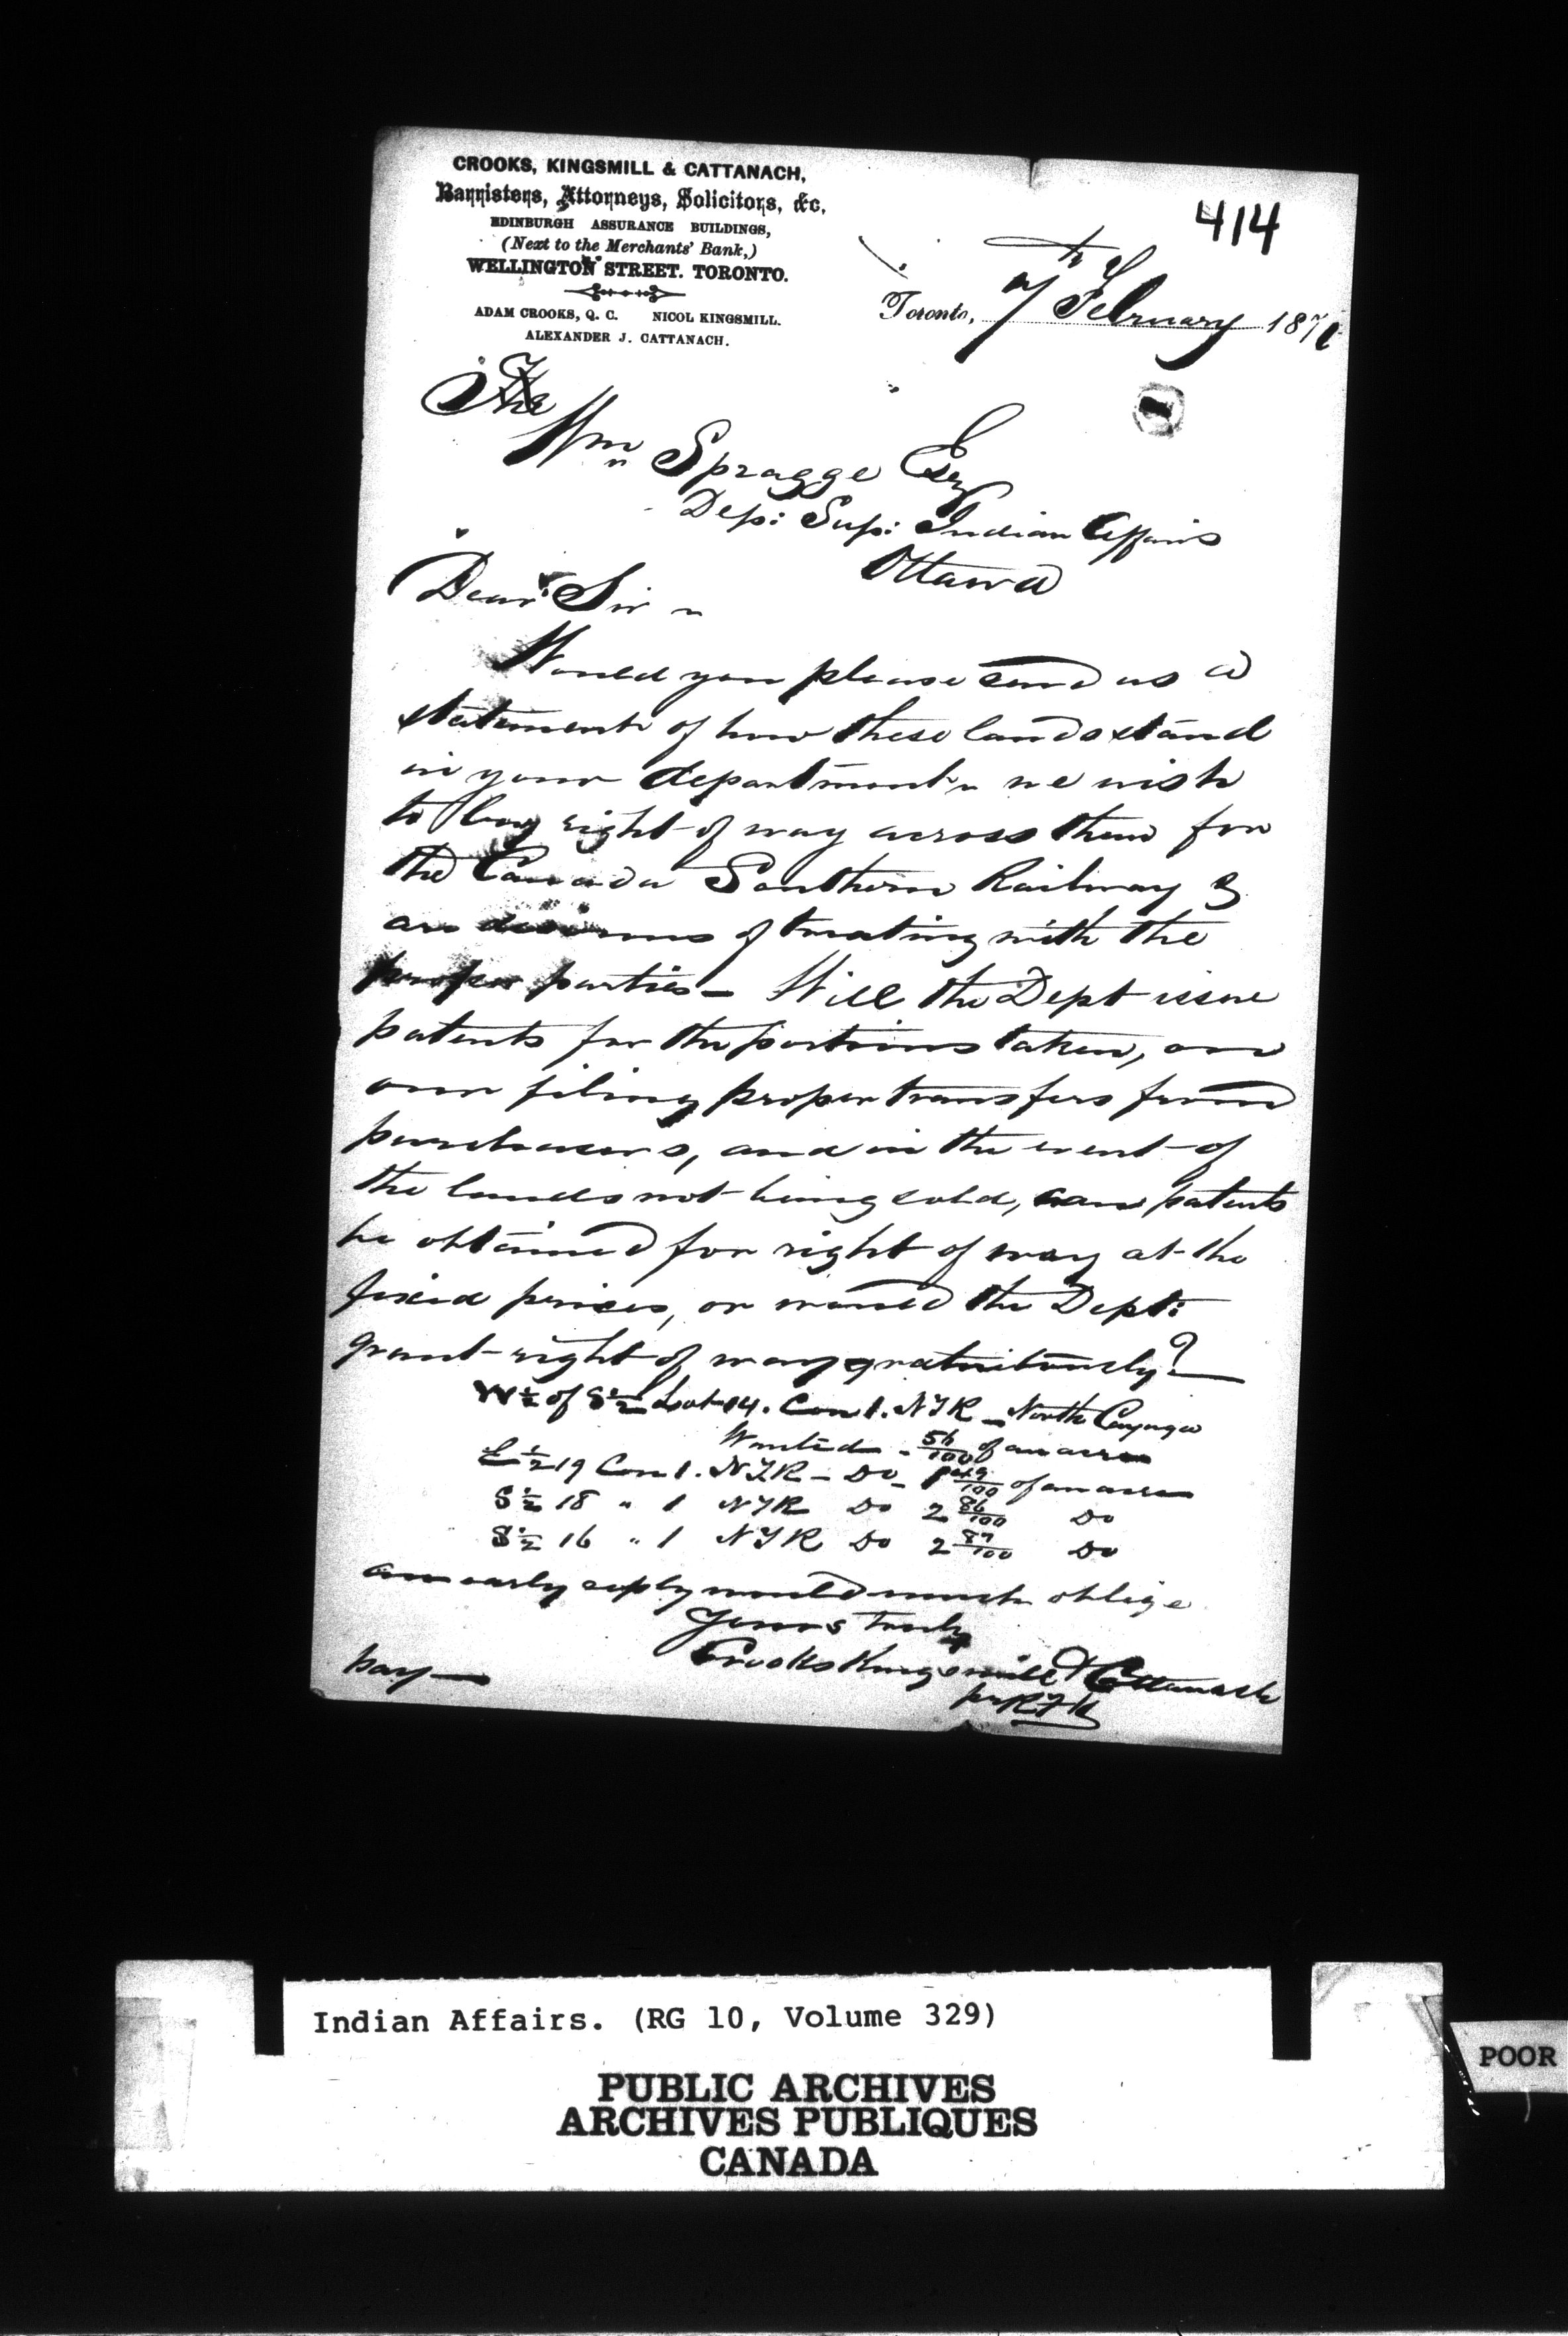 CROOKS, KINGSMILL & CATTANACH,
Barristers, Attorneys, Solicitors, &c,
EDINBURGH ASSURANCE BUILDINGS,
(Next to the Merchants' Bank,)
WELLINGTON STREET. TORONTO.
ADAM CROOKS, Q. C. NICOL KINGSMILL.
ALEXANDER J. CATTANACH.
414
Toronto, 7th February 1871
1
The
Wm Spragge Esq
Dep: Sup: Indian Affairs
Ottawa
Dear Sir
Would you please send us a
statement of how these lands stand
in your department we wish
to buy right of way across them for
the Canada Southern Railway &
are desirous of treating with the
proper parties – Will the Dept issue
patents for the portions taken, on
our filing proper transfers from
purchasers, and in the event of
the lands not being sold, can patents
be obtained for right of way at the
fixed prices, or would the Dept:
grant right of way gratuitously?
W½ of S½ Lot 14. Con 1. NTR – North Cayuga
Wanted - 56/100 of an acre
E½ 19 Con 1. NTR – Do – 49/100 of an acre
S½ 18 " 1 NTR Do 2 86/100 Do
S½ 16 " 1 NTR Do 2 87/100 Do
an early reply would much oblige
Yours truly
Crooks Kingsmill & Cattanach
per
Indian Affairs. (RG 10, Volume 329)
PUBLIC ARCHIVES
ARCHIVES PUBLIQUES
CANADA
POOR